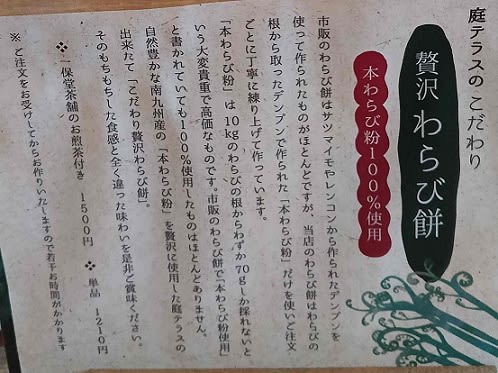 庭テラスのこだわり
贅沢わらび餅
本わらび粉100%使用
市販のわらび餅はサツマイモやレンコンから作られたデンプンを
使って作られたものがほとんどですが、当店のわらび餅はわらびの
根から取ったデンプンで作られた「本わらび粉」だけを使いご注文
ごとに丁寧に練り上げて作っています。
「本わらび粉」は10kgのわらびの根からわずか70gしか採れないと
いう大変貴重で高価なものです。市販のわらび餅で「本わらび粉使用」
と書かれていても100%使用したものはほとんどありません。
自然豊かな南九州産の「本わらび粉」を贅沢に使用した庭テラスの
出来たて「こだわり贅沢わらび餅」。
そのもちもちした食感と全く違った味わいを是非ご賞味ください。
❖一保堂茶舗のお煎茶付き 1500円 ❖単品 1210円
※ご注文をお受けしてからお作りいたしますので若干お時間がかかります